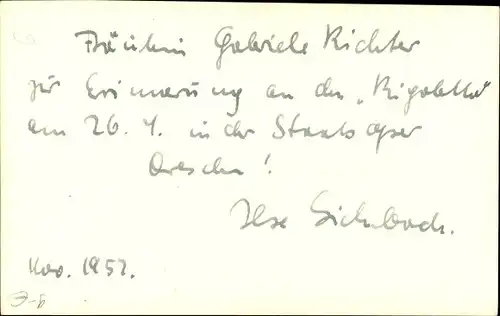 Fräulein Gabriele Richter
zur Erinnerung an den „Rigoletto"
am 26. 4. in der Staatsoper
Dresden!
Ilse
Nov. 1957.